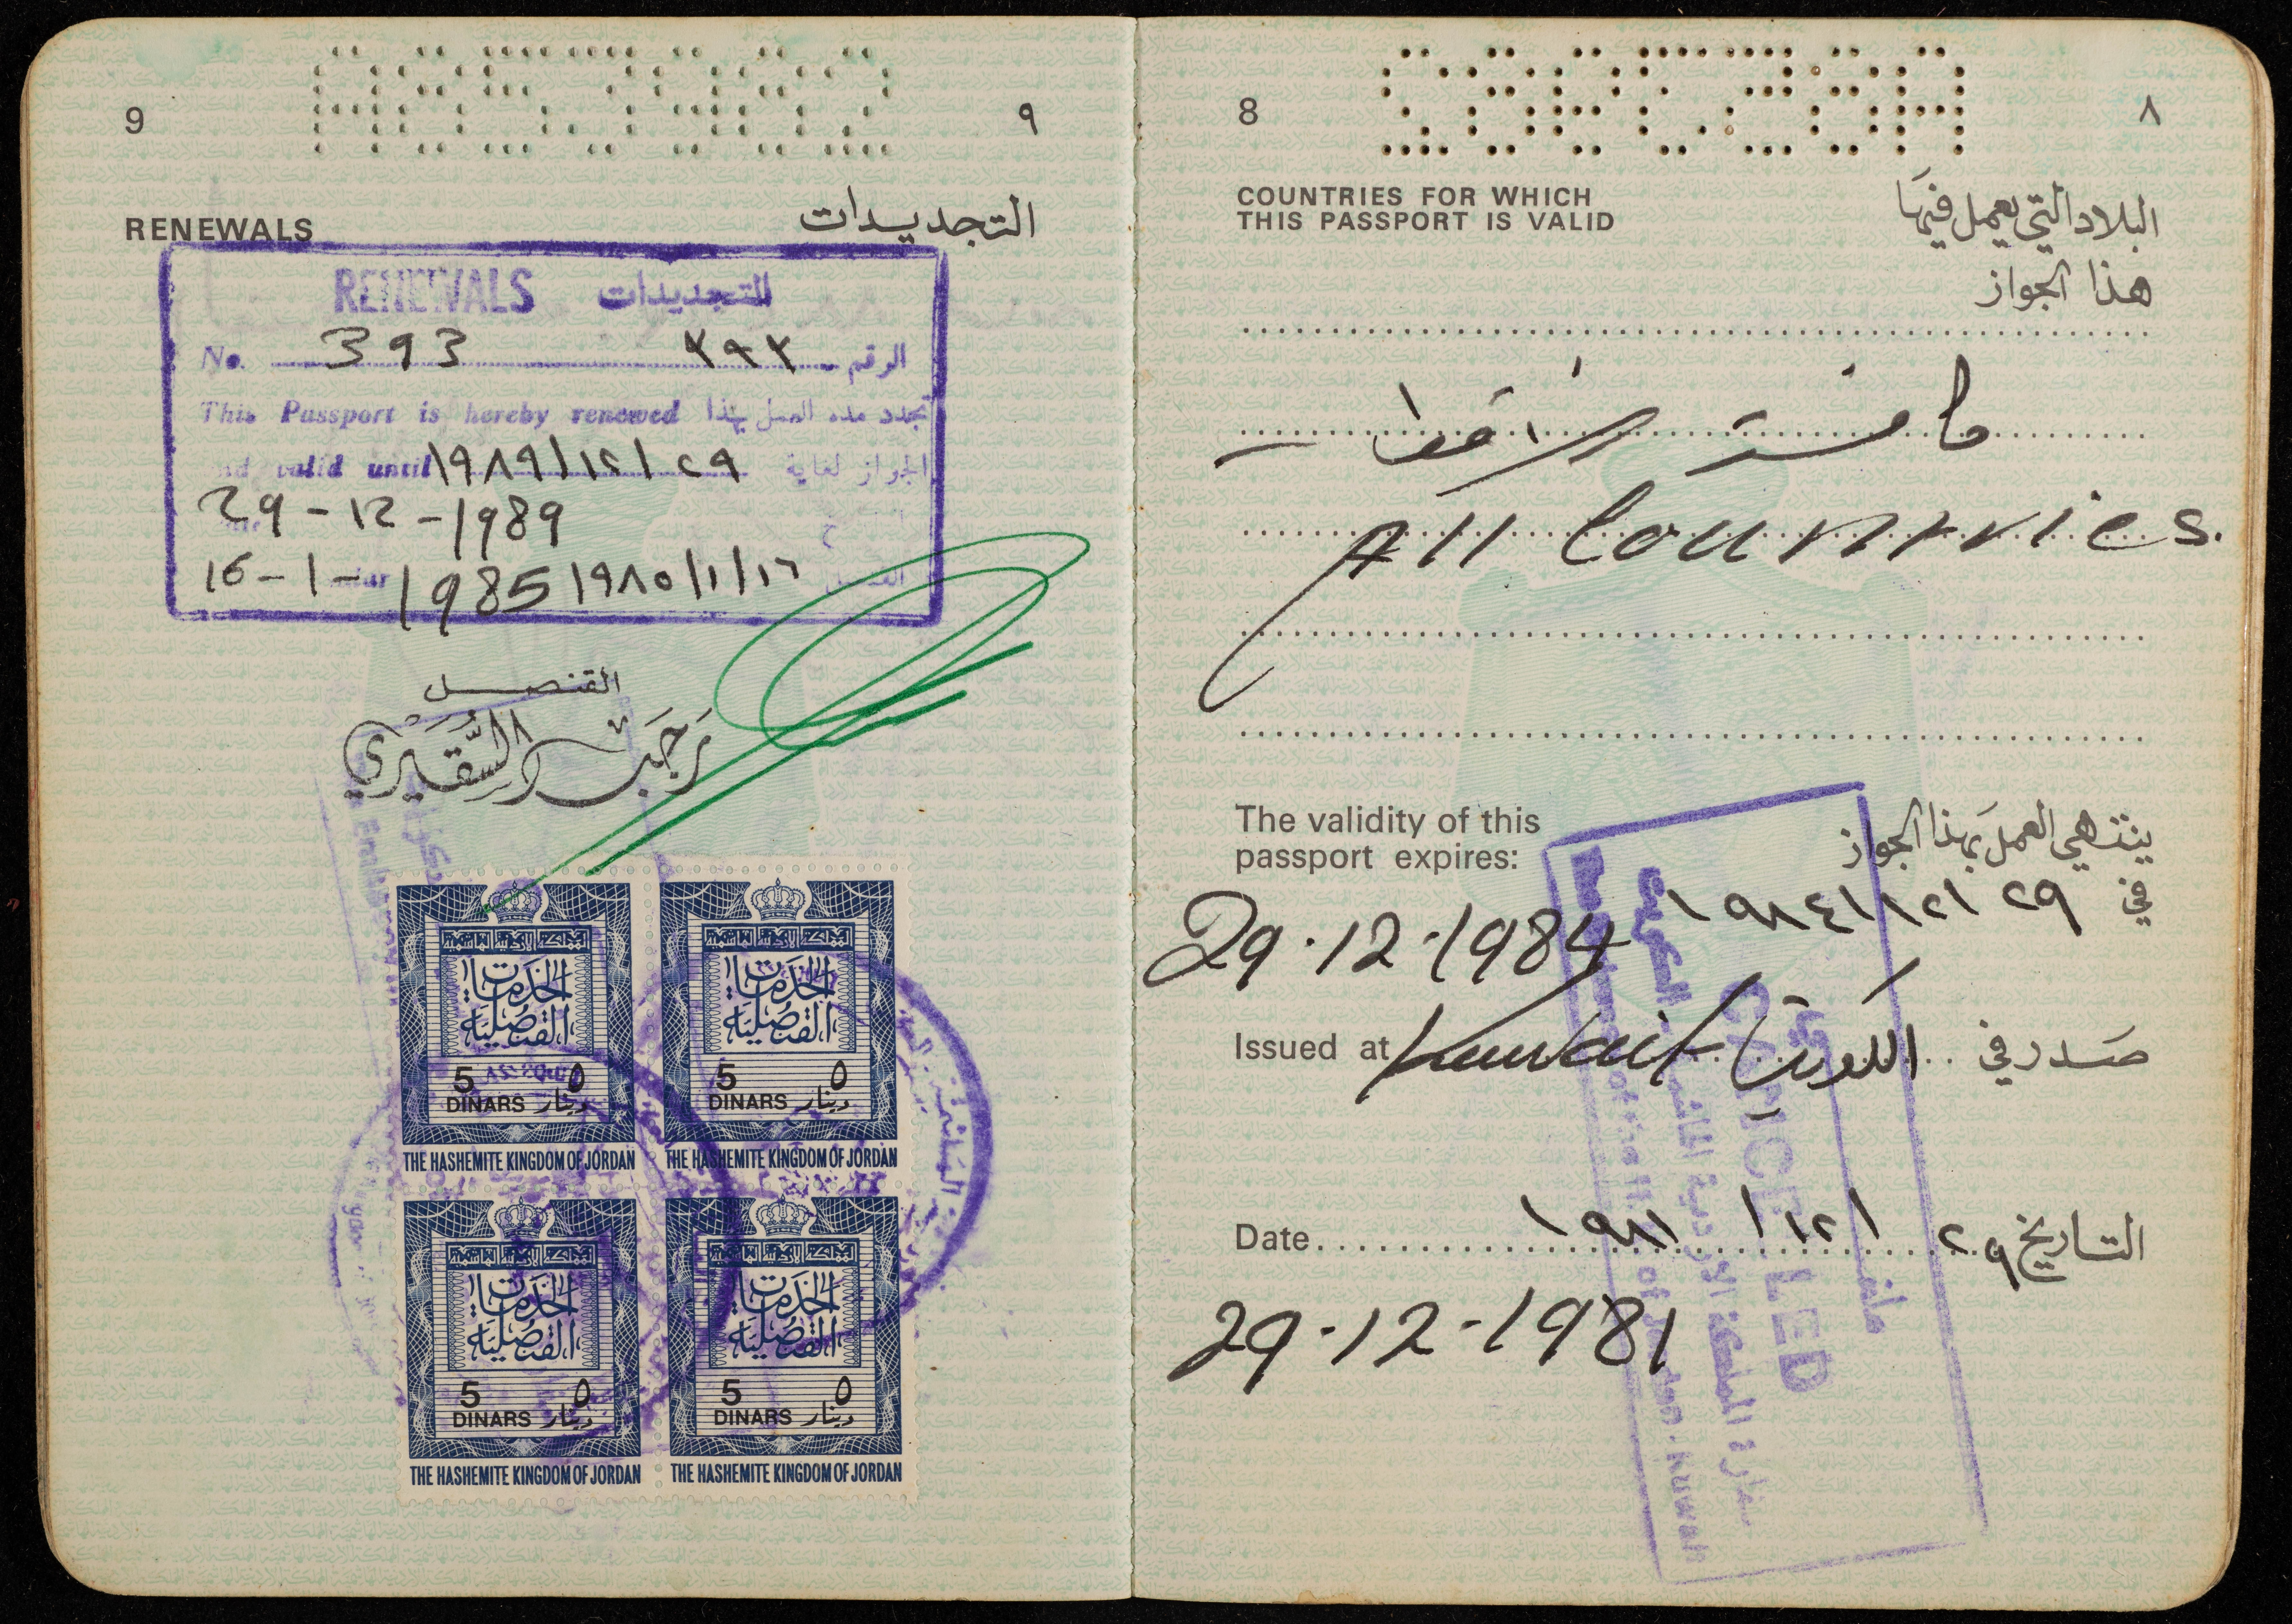 8 ٨
COUNTRIES FOR WHICH
THIS PASSPORT IS VALID
البلاد التي يعمل فيها
هذا الجواز
All Countries.
The validity of this
passport expires:
ينتهي العمل بهذا الجواز
في ٢٩/١٢/١٩٨٤
29.12.1984
Issued at Kuwait الكويت صدر في
Date ١٩٨١/١٢/٢٩ التاريخ
29-12-1981
CANCELLED
9 ٩
RENEWALS التجديدات
RENEWALS التجديدات
No. 393 ٣٩٣ الرقم
This Passport is hereby renewed تجدد مدة العمل بهذا
valid until ١٩٨٩/١٢/٢٩ الجواز لغاية
29-12-1989
16-1-1985 ١٩٨٥/١/١٦
القنصل
رجب السقيري
المملكة الأردنية الهاشمية
الخدمات
القنصلية
5 ٥
DINARS دينار
THE HASHEMITE KINGDOM OF JORDAN
المملكة الأردنية الهاشمية
الخدمات
القنصلية
5 ٥
DINARS دينار
THE HASHEMITE KINGDOM OF JORDAN
المملكة الأردنية الهاشمية
الخدمات
القنصلية
5 ٥
DINARS دينار
THE HASHEMITE KINGDOM OF JORDAN
المملكة الأردنية الهاشمية
الخدمات
القنصلية
5 ٥
DINARS دينار
THE HASHEMITE KINGDOM OF JORDAN